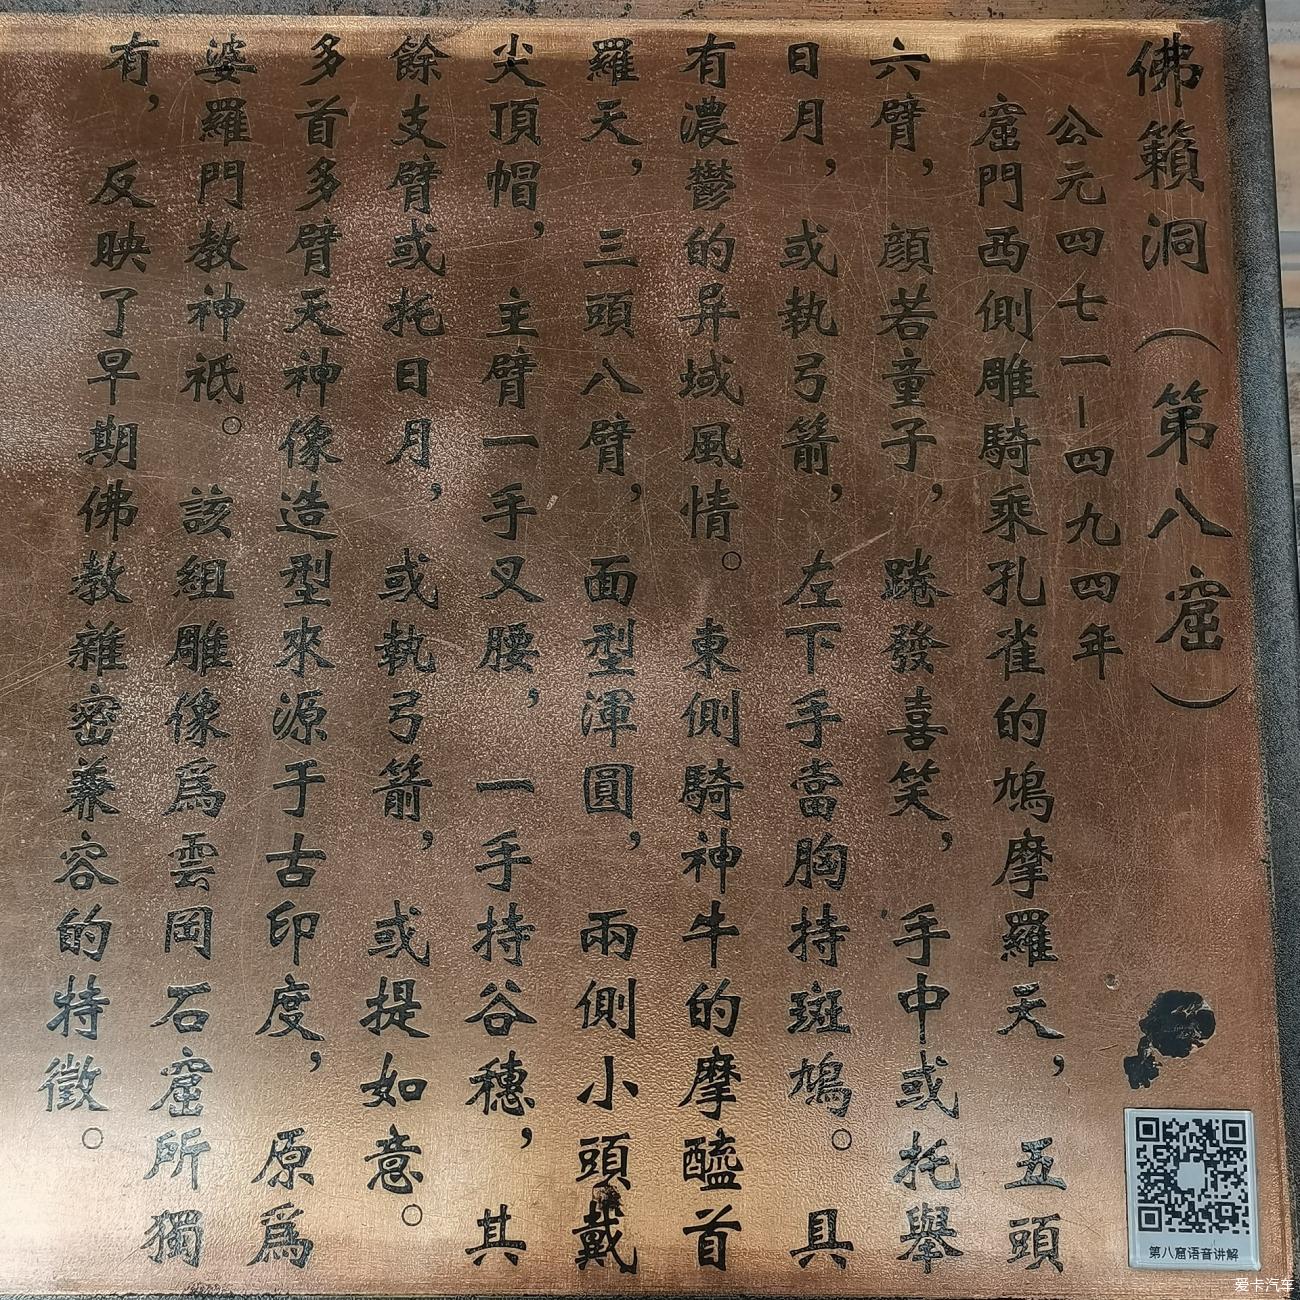 佛籟洞（第八窟）
公元四七一－四九四年
窟門西側雕騎乘孔雀的鳩摩羅天，五頭
六臂，顔若童子，踡發喜笑，手中或托舉
日月，或執弓箭，左下手當胸持斑鳩。具
有濃鬱的异域風情。東側騎神牛的摩醯首
羅天，三頭八臂，面型渾圓，兩側小頭戴
尖頂帽，主臂一手叉腰，一手持谷穗，其
餘支臂或托日月，或執弓箭，或提如意。
多首多臂天神像造型來源于古印度，原爲
婆羅門教神祇。該組雕像爲雲岡石窟所獨
有，反映了早期佛教雜密兼容的特徵。
第八窟语音讲解
爱卡汽车